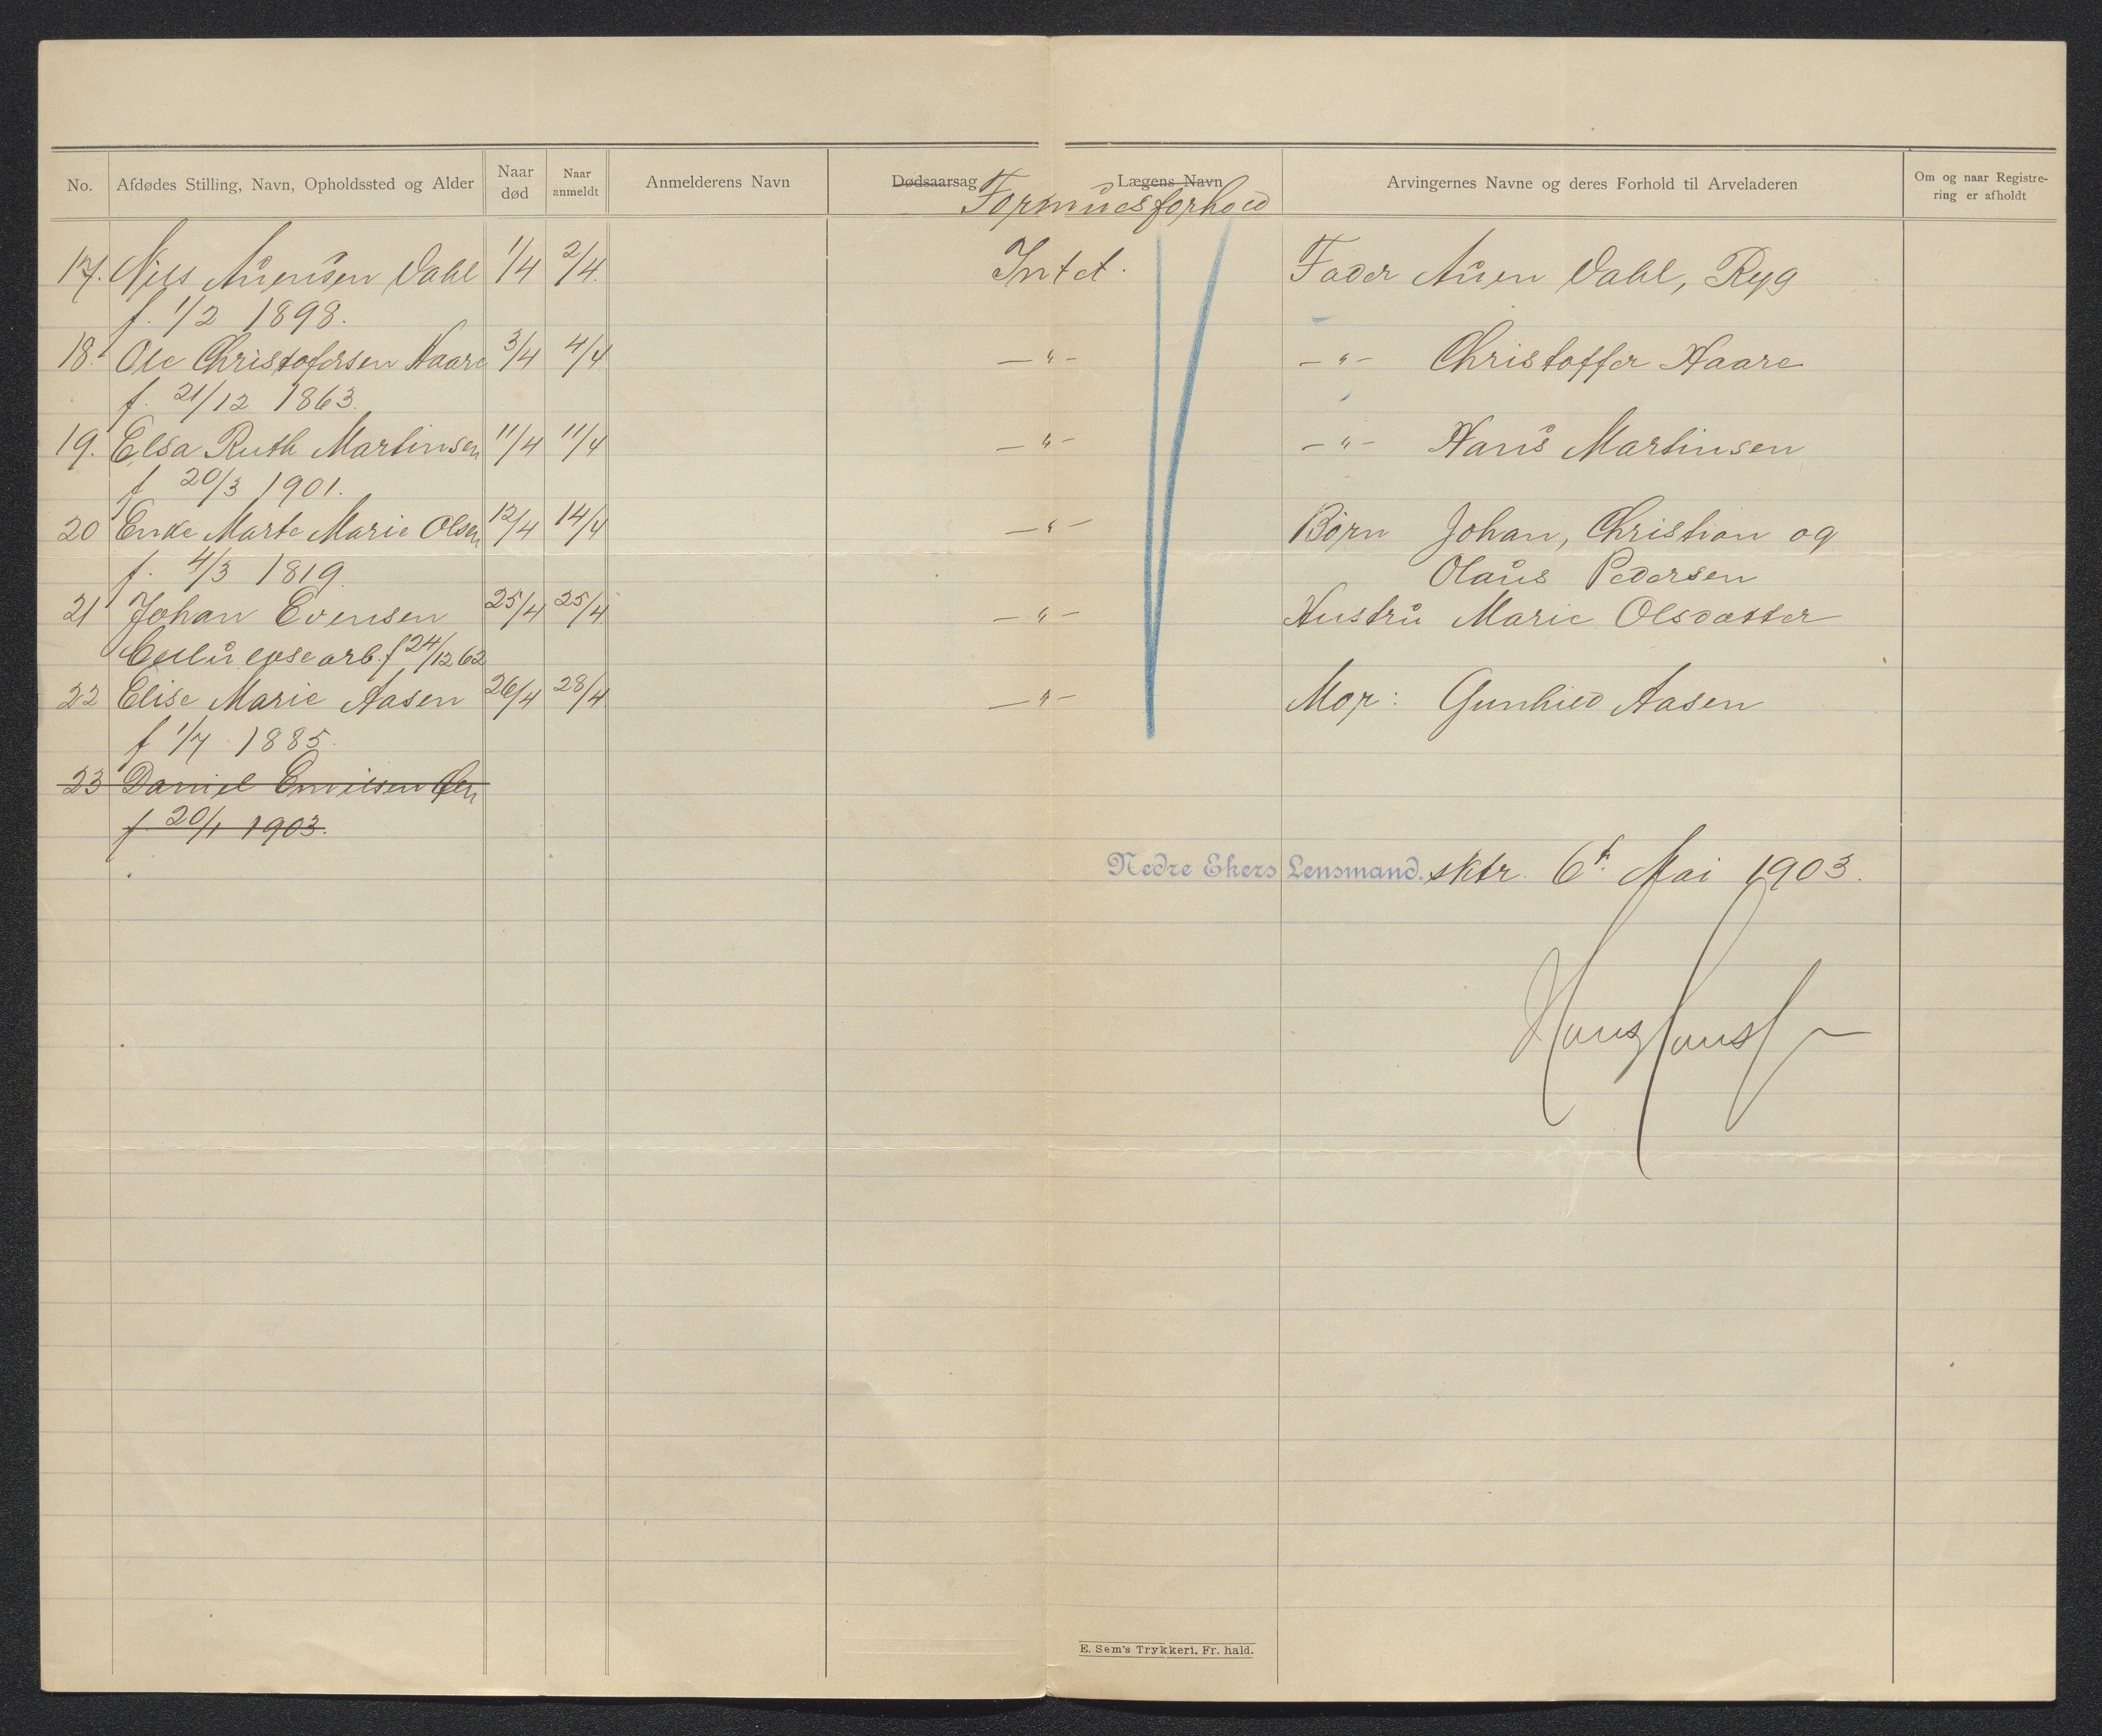 No. Afdødes Stilling, Navn, Opholdssted og Alder Naar død Naar anmeldt Anmelderens Navn Dødsaarsag Lægens Navn Arvingernes Navne og deres Forhold til Arveladeren Om og naar Registrering er afholdt
Formuesforhold
17. Nils Auensen Dahl 1/4 2/4. Intet. Fader Auen Dahl, Ryg
f. 1/2 1898.
18. Ole Christofersen Haare 3/4 4/4 -"- -"- Christoffer Haare
f. 21/12 1863.
19. Elsa Ruth Martinsen 11/4 11/4 -"- -"- Hans Martinsen
f 20/3 1901.
20 Enke Marte Marie Olsen 12/4 14/4 -"- Børn Johan, Christian og
f. 4/3 1819. Olaus Pedersen
21 Johan Evensen 25/4 25/4 -"- Hustru Marie Olsdatter
Cellulosearb. f 24/12 62
22 Elise Marie Aasen 26/4 28/4 -"- Mor: Gunhild Aasen
f 1/7 1885.
23 Daniel Emilsen
f. 20/1 1903.
Nedre Ekers Lensmand. sktr. 6t. Mai 1903.
E. Sem's Trykkeri, Fr. hald.